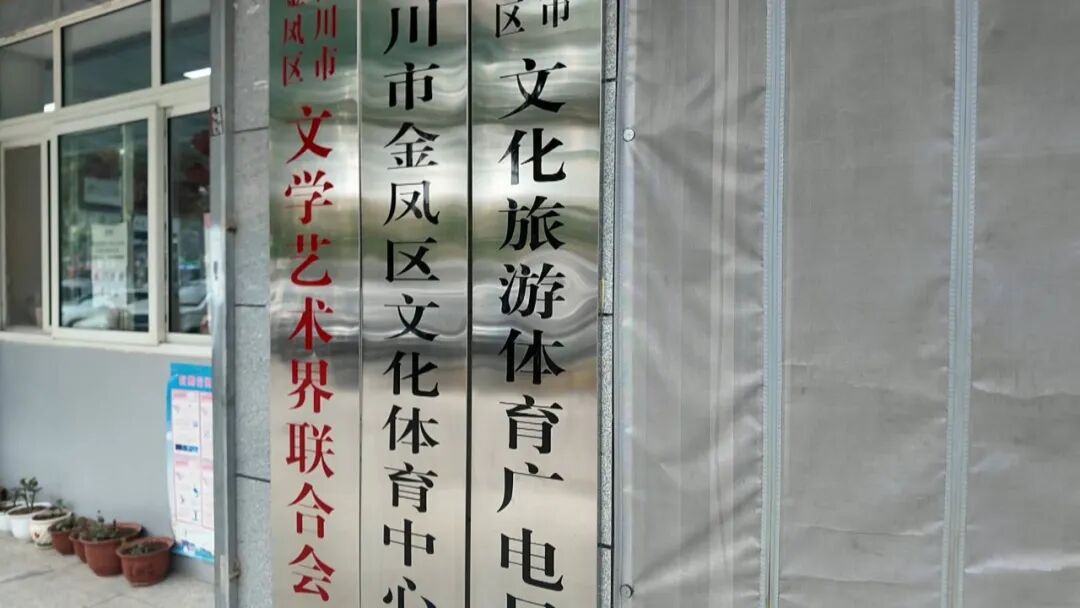 川市
金凤区
文学艺术界联合会
川市金凤区文化体育中心
市
区
文化旅游体育广电